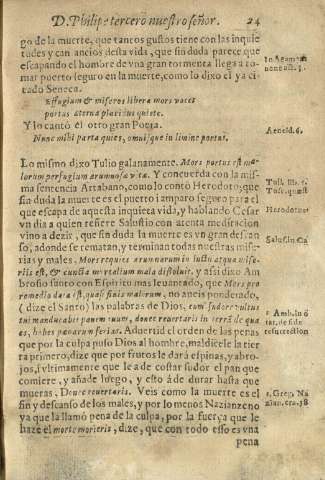 D. Philipe tercero nuestro señor. 24
go de la muerte, que tantos gustos tiene con las inquie
tudes y cansancios desta vida, que sin duda parece que
escapando el hombre de vna gran tormenta llega a to-
mar puerto seguro en la muerte, como lo dixo el ya ci-
tado Seneca.
Effugium & miseros libera mors vocet
portus æterna placidus quiete.
Y lo cantò el otro gran Poeta.
Nunc mihi parta quies, omnisque in limine portus.
Lo mismo dixo Tulio galanamente. Mors portus est ma-
lorum perfugium ærumnosæ vitæ. Y concuerda con la mis-
ma sentencia Artabano, como lo contò Herodoto; que
sin duda la muerte es el puerto i amparo seguro para el
que escapa de aquesta inquieta vida, y hablando Cesar
vn dia a quien refiere Salustio con atenta meditacion
vino a dezir, que sin duda la muerte es vn gran descan-
so, adonde se rematan, y terminan todas nuestras mise-
rias y males. Mors requies ærumnarum in luctu atque mise-
riis est, & cuncta mortalium mala dissoluit. y assi dixo Am
brosio santo con Espiritu mas leuantado, que Mors pro
remedio data est, quasi finis malorum, no aueis ponderado,
(dize el Santo) las palabras de Dios, cum sudore vultus
tui manducabis panem tuum, donec reuertaris in terrā de qua
es, habes pœnarum ferias. Aduertid el orden de las penas
que por la culpa puso Dios al hombre, maldicele la tier
ra primero, dize que por frutos le darà espinas, y abro-
jos, i vltimamente que le a de costar sudor el pan que
comiere, y añade luego, y esto à de durar hasta que
mueras, Donec reuertaris. Veis como la muerte es el
fin y descanso de los males, y por lo menos Nazianzeno
ya que la llamò pena de la culpa, por la fuerça que le
haze el morte morieris, dize, que con todo esso es vna
pena
In Agamem
none act. 3.
Aeneid. 6.
Tull. lib. 1.
Tusc. quæst
Herodotus
Salust. in Ca
Amb. in ō
rat. de fide
resurrectiōn
Greg. Na
zian. ora. 38